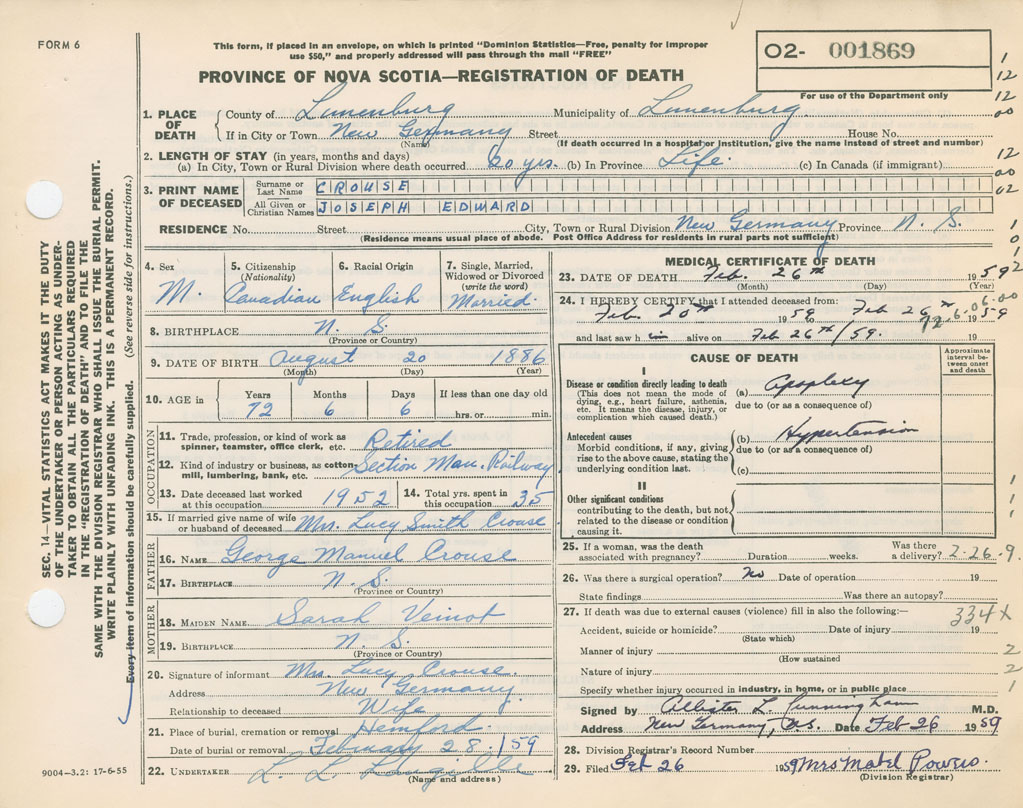 FORM 6
This form, if placed in an envelope, on which is printed "Dominion Statistics—Free, penalty for improper
use $50," and properly addressed will pass through the mail "FREE"
PROVINCE OF NOVA SCOTIA—REGISTRATION OF DEATH
O2- 001869
For use of the Department only
1
12
12
00
12
00
02
1
0
1
2
1. PLACE OF DEATH
County of Lunenburg Municipality of Lunenburg
If in City or Town New Germany Street House No.
(Name) (If death occurred in a hospital or institution, give the name instead of street and number)
2. LENGTH OF STAY (in years, months and days)
(a) In City, Town or Rural Division where death occurred 60 yrs. (b) In Province Life. (c) In Canada (if immigrant)
3. PRINT NAME OF DECEASED
Surname or Last Name CROUSE
All Given or Christian Names JOSEPH EDWARD
RESIDENCE No. Street City, Town or Rural Division New Germany Province N. S.
(Residence means usual place of abode. Post Office Address for residents in rural parts not sufficient)
4. Sex M.
5. Citizenship (Nationality) Canadian
6. Racial Origin English
7. Single, Married, Widowed or Divorced (write the word) Married.
8. BIRTHPLACE N. S.
(Province or Country)
9. DATE OF BIRTH August 20 1886
(Month) (Day) (Year)
10. AGE in Years Months Days If less than one day old
72 6 6 hrs. or min.
OCCUPATION
11. Trade, profession, or kind of work as spinner, teamster, office clerk, etc. Retired
12. Kind of industry or business, as cotton mill, lumbering, bank, etc. Section Man. Railway
13. Date deceased last worked at this occupation 1952
14. Total yrs. spent in this occupation 35
15. If married give name of wife or husband of deceased Mrs. Lucy Smith Crouse
FATHER
16. NAME George Manuel Crouse
17. BIRTHPLACE N. S.
(Province or Country)
MOTHER
18. MAIDEN NAME Sarah Veinot
19. BIRTHPLACE N. S.
(Province or Country)
20. Signature of informant Mrs. Lucy Crouse
Address New Germany
Relationship to deceased Wife
21. Place of burial, cremation or removal Hemford
Date of burial or removal February 28/59
22. UNDERTAKER L. L. Langille
(Name and address)
MEDICAL CERTIFICATE OF DEATH
23. DATE OF DEATH Feb. 26th 1959
(Month) (Day) (Year)
24. I HEREBY CERTIFY that I attended deceased from:
Feb. 20th 1959 Feb 26 1959
and last saw him alive on Feb 26th/59. 19
CAUSE OF DEATH
Approximate interval between onset and death
I
Disease or condition directly leading to death
(This does not mean the mode of dying, e.g., heart failure, asthenia, etc. It means the disease, injury, or complication which caused death.)
(a) Apoplexy
due to (or as a consequence of)
Antecedent causes
Morbid conditions, if any, giving rise to the above cause, stating the underlying condition last.
(b) Hypertension
due to (or as a consequence of)
(c)
II
Other significant conditions
contributing to the death, but not related to the disease or condition causing it.
1
1
25. If a woman, was the death associated with pregnancy? Duration weeks. Was there a delivery? 2-26-9.
26. Was there a surgical operation? No Date of operation 19
State findings Was there an autopsy?
27. If death was due to external causes (violence) fill in also the following:—
334X
Accident, suicide or homicide? Date of injury 19
(State which)
Manner of injury 2
(How sustained
Nature of injury 2
Specify whether injury occurred in industry, in home, or in public place 1
Signed by Allister L. Cunningham M.D.
Address New Germany, N.S. Date Feb 26 1959
28. Division Registrar's Record Number
29. Filed Feb 26 1959 Mrs Mabel Powers.
(Division Registrar)
SEC. 14—VITAL STATISTICS ACT MAKES IT THE DUTY
OF THE UNDERTAKER OR PERSON ACTING AS UNDER-
TAKER TO OBTAIN ALL THE PARTICULARS REQUIRED
IN THE "REGISTRATION OF DEATH" AND TO FILE THE
SAME WITH THE DIVISION REGISTRAR WHO SHALL ISSUE THE BURIAL PERMIT.
WRITE PLAINLY WITH UNFADING INK. THIS IS A PERMANENT RECORD.
Every item of information should be carefully supplied. (See reverse side for instructions.)
9004—3.2: 17-6-55